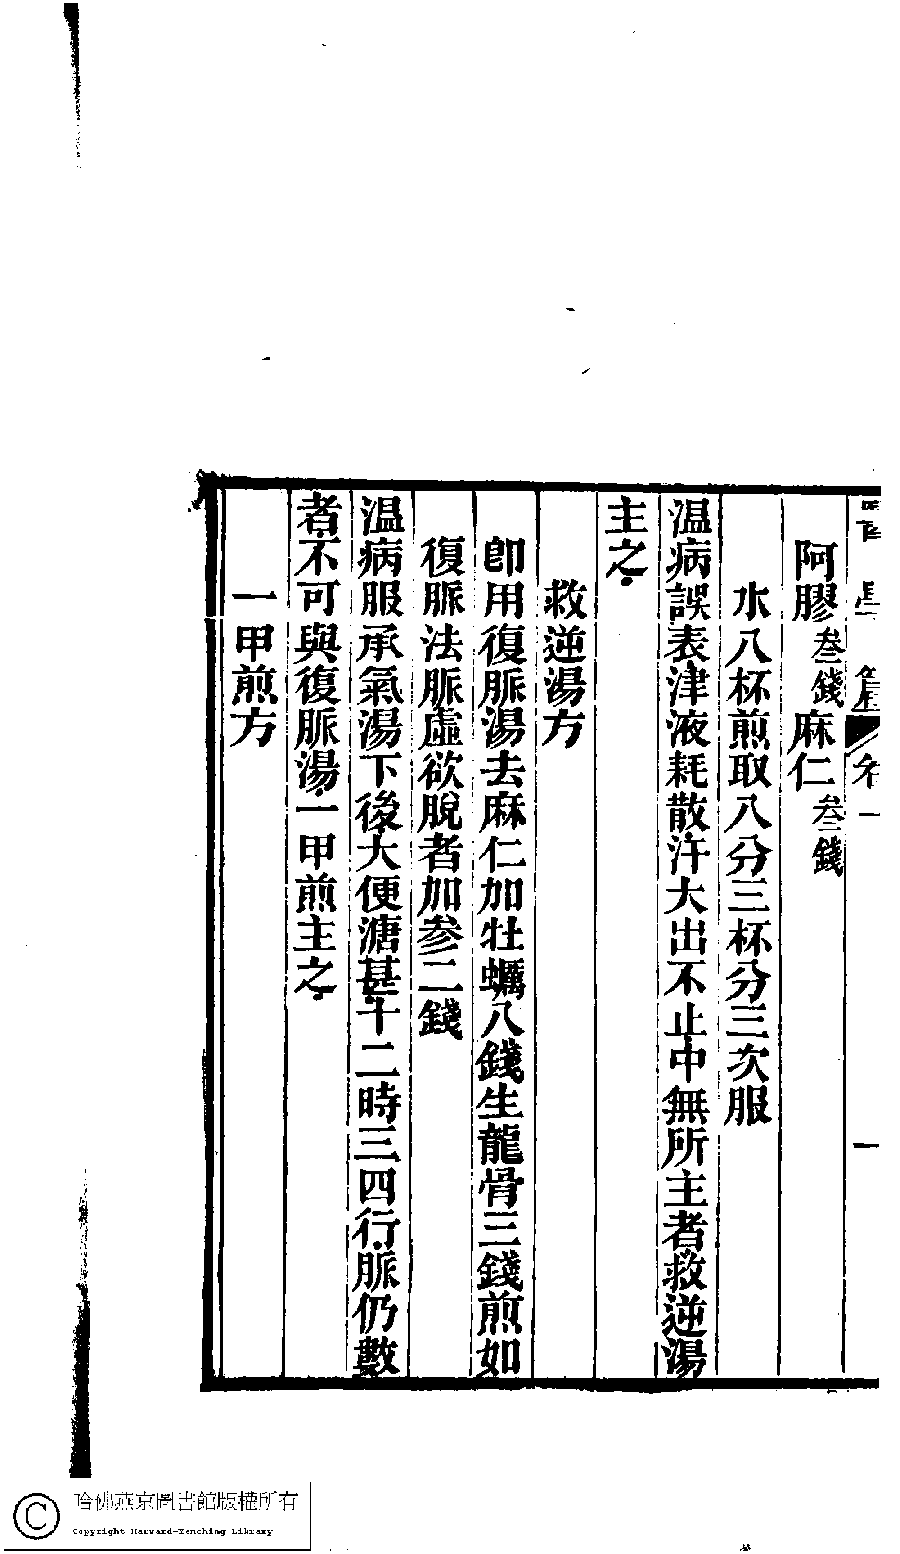 阿膠叁錢麻仁叁錢
水八杯煎取八分三杯分三次服
温病誤表津液耗散汗大出不止中無所主者救逆湯
主之
救逆湯方
卽用復脈湯去麻仁加牡蠣八錢生龍骨三錢煎如
復脈法脈虛欲脫者加參二錢
温病服承氣湯下後大便溏甚十二時三四行脈仍數
者不可與復脈湯一甲煎主之
一甲煎方
哈佛燕京圖書館版權所有
Copyright Harvard-Yenching Library